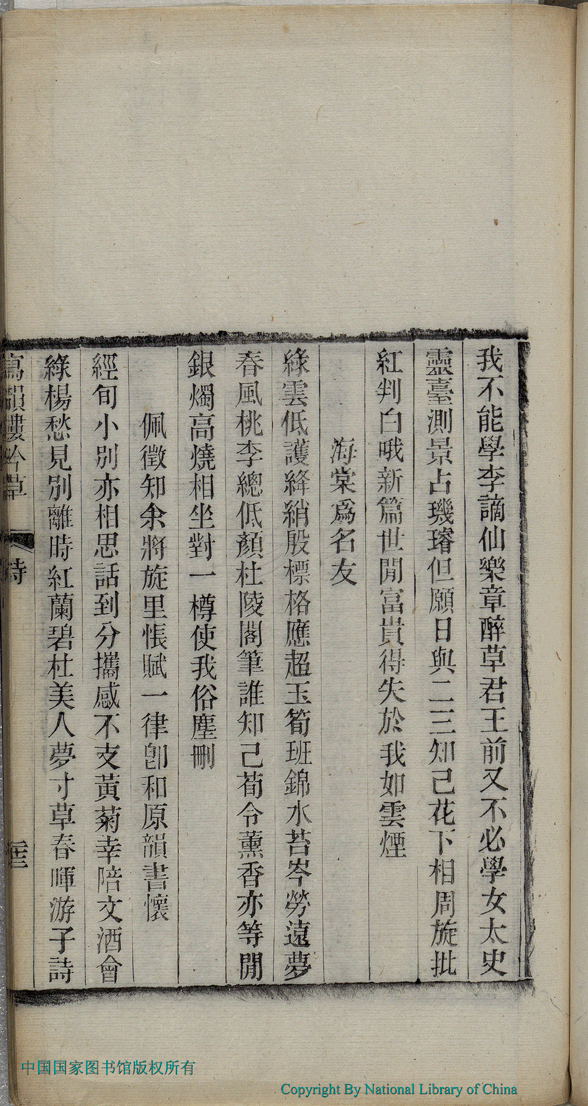 我不能學李謫仙樂章醉草君王前又不必學女太史
靈臺測景占璣璿但願日與二三知己花下相周旋批
紅判白哦新篇世閒富貴得失於我如雲煙
海棠爲名友
綠雲低護絳綃殷標格應超玉筍班錦水苔岑勞遠夢
春風桃李總低顏杜陵閣筆誰知己荀令薰香亦等閒
銀燭高燒相坐對一樽使我俗塵刪
佩徵知余將旋里悵賦一律卽和原韻書懷
經旬小別亦相思話到分攜感不支黃菊幸陪文酒會
綠楊愁見別離時紅蘭碧杜美人夢寸草春暉游子詩
寫韻樓吟草 詩
中国国家图书馆版权所有
Copyright By National Library of China